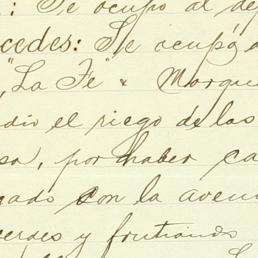 : Se ocupó al de
cedes: Se ocupó a
"La Fé" Marqu
dió el riego de las
sa, por haber ca
gado con la aven
verdes y frutiando